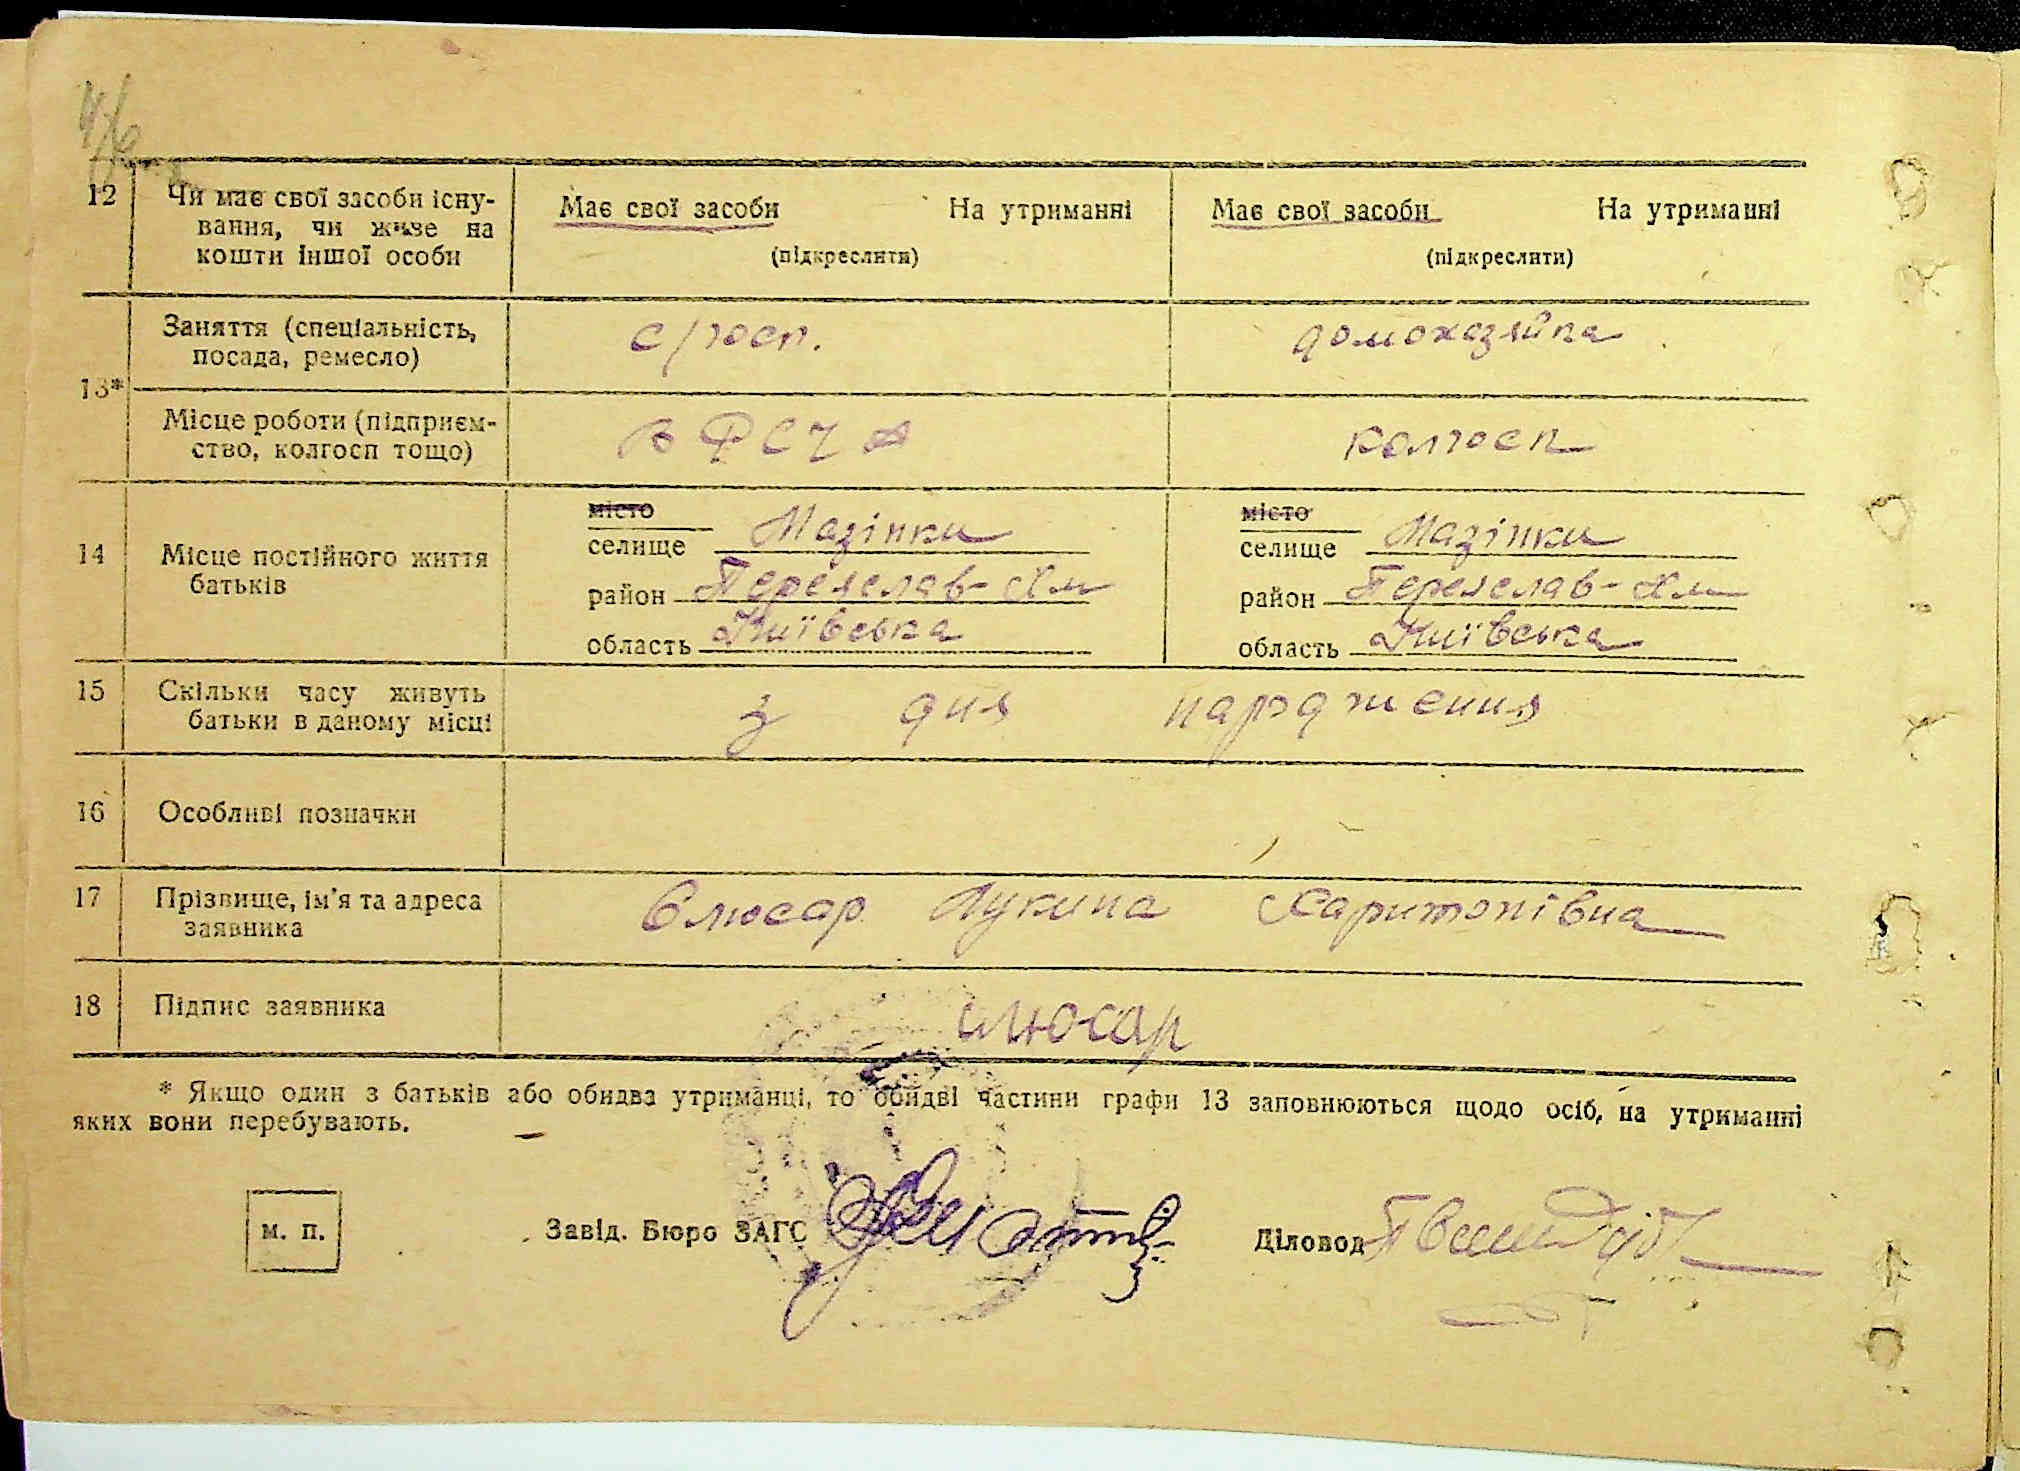 12 Чи має свої засоби існу-
вання, чи живе на
кошти іншої особи
Має свої засоби На утриманні
(підкреслити)
Має свої засоби На утриманні
(підкреслити)
13*
Заняття (спеціальність,
посада, ремесло)
с/госп.
домохазяйка
Місце роботи (підприєм-
ство, колгосп тощо)
в РСЧА
колгосп
14 Місце постійного життя
батьків
місто
селище Мазінки
район Переяслав-Хм
область Київська
місто
селище Мазінки
район Переяслав-Хм
область Київська
15 Скільки часу живуть
батьки в даному місці
з дня народження
16 Особливі позначки
17 Прізвище, ім'я та адреса
заявника
Слюсар Лукина Харитонівна
18 Підпис заявника
слюсар
* Якщо один з батьків або обидва утриманці, то обидві частини графи 13 заповнюються щодо осіб, на утриманні
яких вони перебувають.
м. п.
Завід. Бюро ЗАГС
Діловод